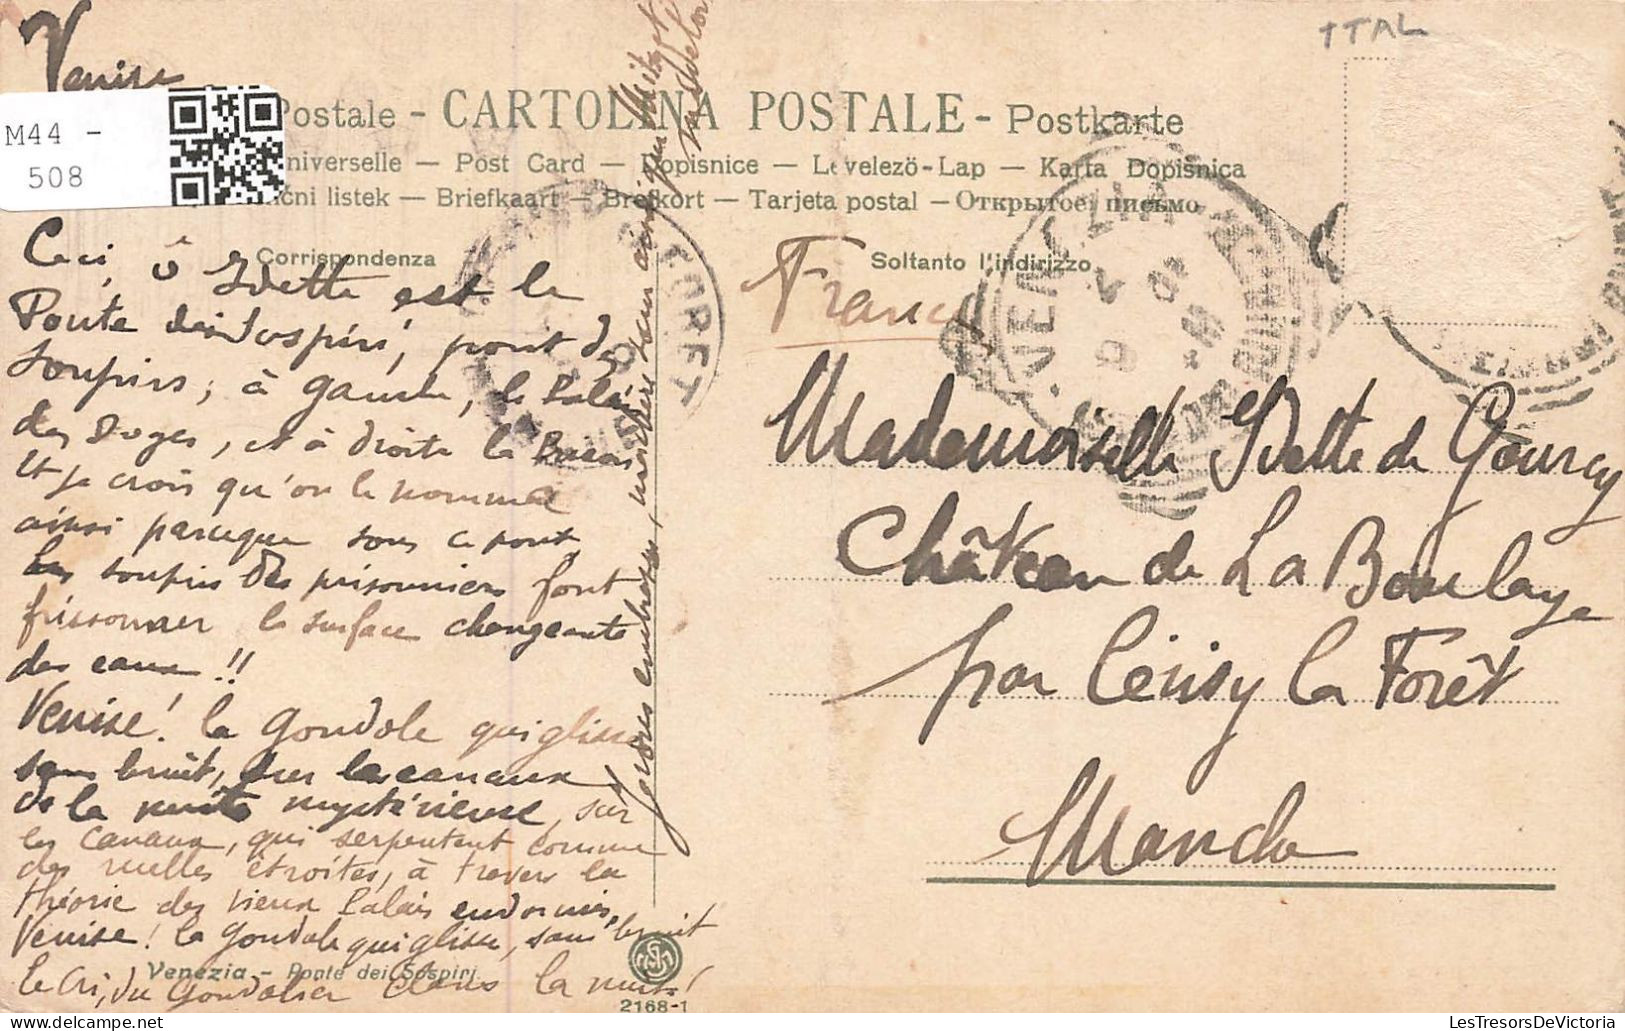 ITAL
Venise
M44 -
508
Postale - CARTOLINA POSTALE - Postkarte
niverselle — Post Card — Dopisnice — Levelezö-Lap — Karta Dopisnica
čni listek — Briefkaart — Brefkort — Tarjeta postal — Открытое письмо
Corrispondenza
Soltanto l'indirizzo
Ceci, ô Yvette est le
Ponte dei Sospiri, pont des
soupirs, à gauche, le Palais
des Doges, et à droite la
Et je crois qu'on le nomme
ainsi parceque sous ce pont
les soupirs des prisonniers font
frissonner la surface changeante
des eaux!!
Venise! la gondole qui glisse
sans bruit, sur les canaux
de la nuit mystérieuse, sur
les canaux, qui serpentent comme
des ruelles étroites, à travers la
théorie des vieux Palais endormis,
Venise! la gondole qui glisse, sans bruit
le cri, du gondolier dans la nuit!
Venezia - Ponte dei Sospiri
2168-1
Je vous embrasse,
France
Mademoiselle Yvette de Gourcy
Château de La Boulaye
par Cérisy la Forêt
Manche
VENEZIA
FORET
LesTresorsDeVictoria.com